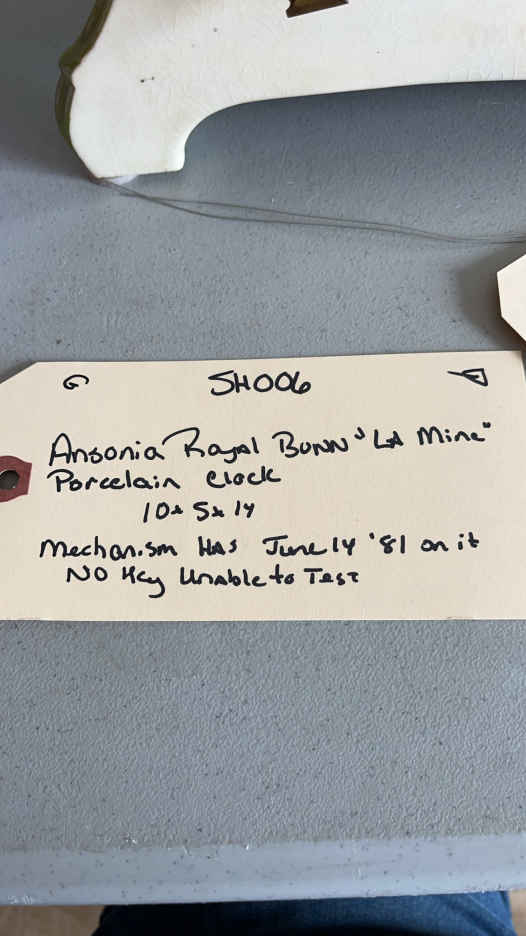 G SH006
Ansonia Royal Bonn "La Mine"
Porcelain Clock
10x 5x 14
Mechanism Has June 14 '81 on it
No Key Unable to Test